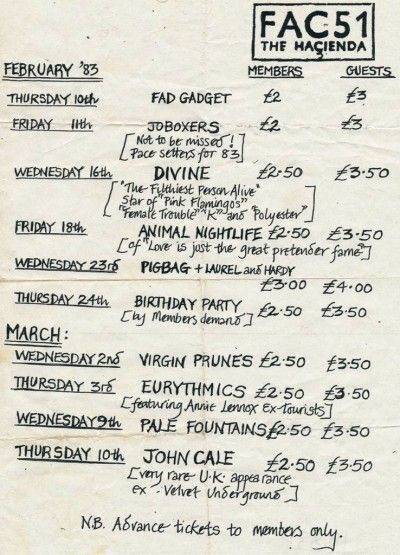 FAC51
THE HAÇIENDA
FEBRUARY '83 MEMBERS GUESTS
THURSDAY 10th FAD GADGET £2 £3
FRIDAY 11th JOBOXERS £2 £3
[Not to be missed!
Pace setters for '83]
WEDNESDAY 16th DIVINE £2·50 £3·50
["The Filthiest Person Alive"
Star of "Pink Flamingos"
"Female Trouble" "K" and "Polyester"]
FRIDAY 18th ANIMAL NIGHTLIFE £2·50 £3·50
[of "Love is just the great pretender fame"]
WEDNESDAY 23rd PIGBAG + LAUREL and HARDY
£3·00 £4·00
THURSDAY 24th BIRTHDAY PARTY £2·50 £3·50
[by Members demand]
MARCH:
WEDNESDAY 2nd VIRGIN PRUNES £2·50 £3·50
THURSDAY 3rd EURYTHMICS £2·50 £3·50
[featuring Annie Lennox Ex-Tourists]
WEDNESDAY 9th PALE FOUNTAINS £2·50 £3·50
THURSDAY 10th JOHN CALE £2·50 £3·50
[very rare U.K. appearance
ex-Velvet Underground]
N.B. Advance tickets to members only.